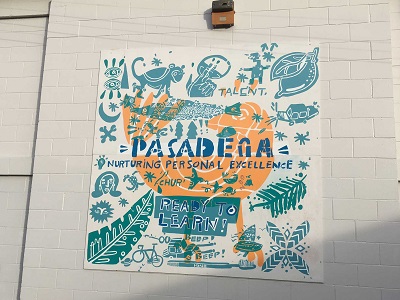 TALENT.
PASADENA
NURTURING PERSONAL EXCELLENCE
CHUR!
READY TO
LEARN!
BEEP!
BEEP!